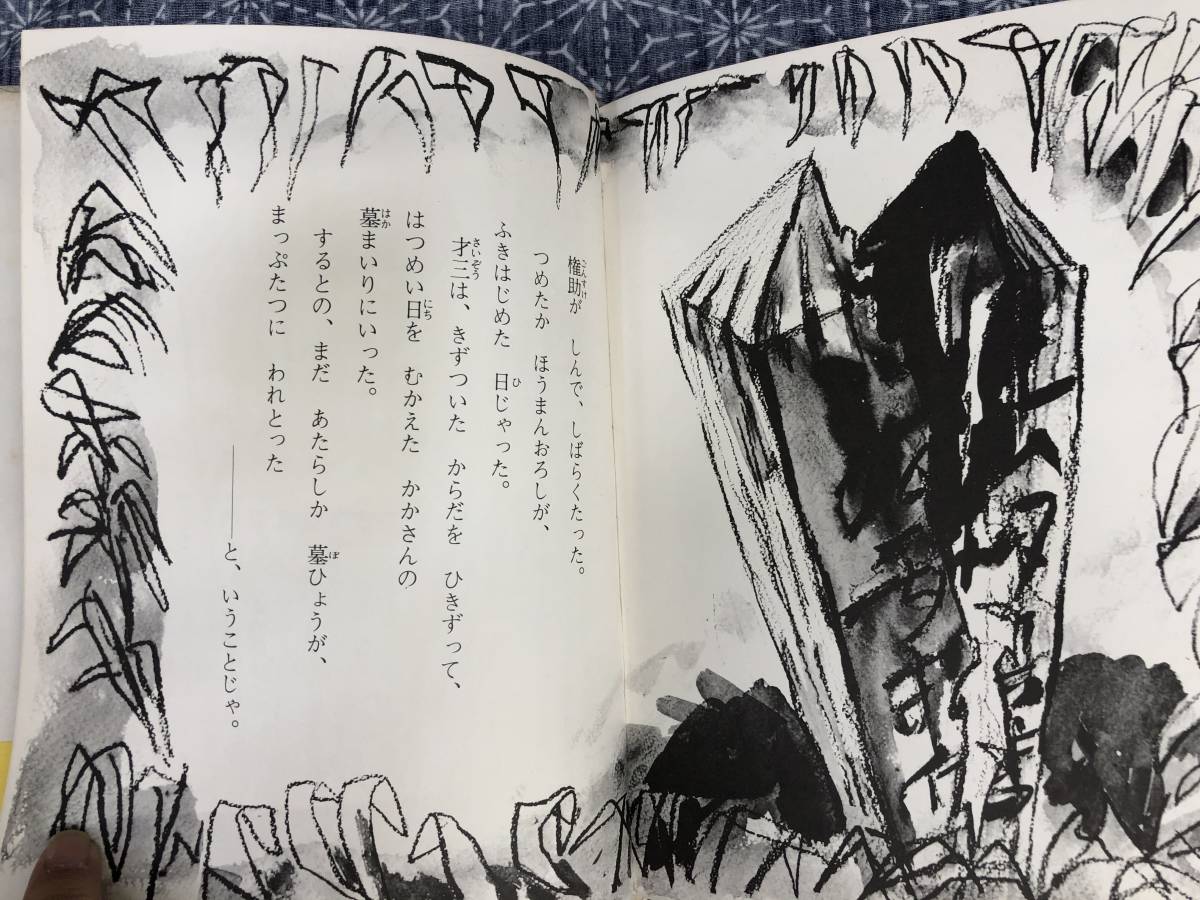 権助が　しんで、しばらくたった。
つめたか　ほうまんおろしが、
ふきはじめた　日じゃった。
才三は、きずついた　からだを　ひきずって、
はつめい日を　むかえた　かかさんの
墓まいりにいった。
するとの、まだ　あたらしか　墓ひょうが、
まっぷたつに　われとった
――と、いうことじゃ。